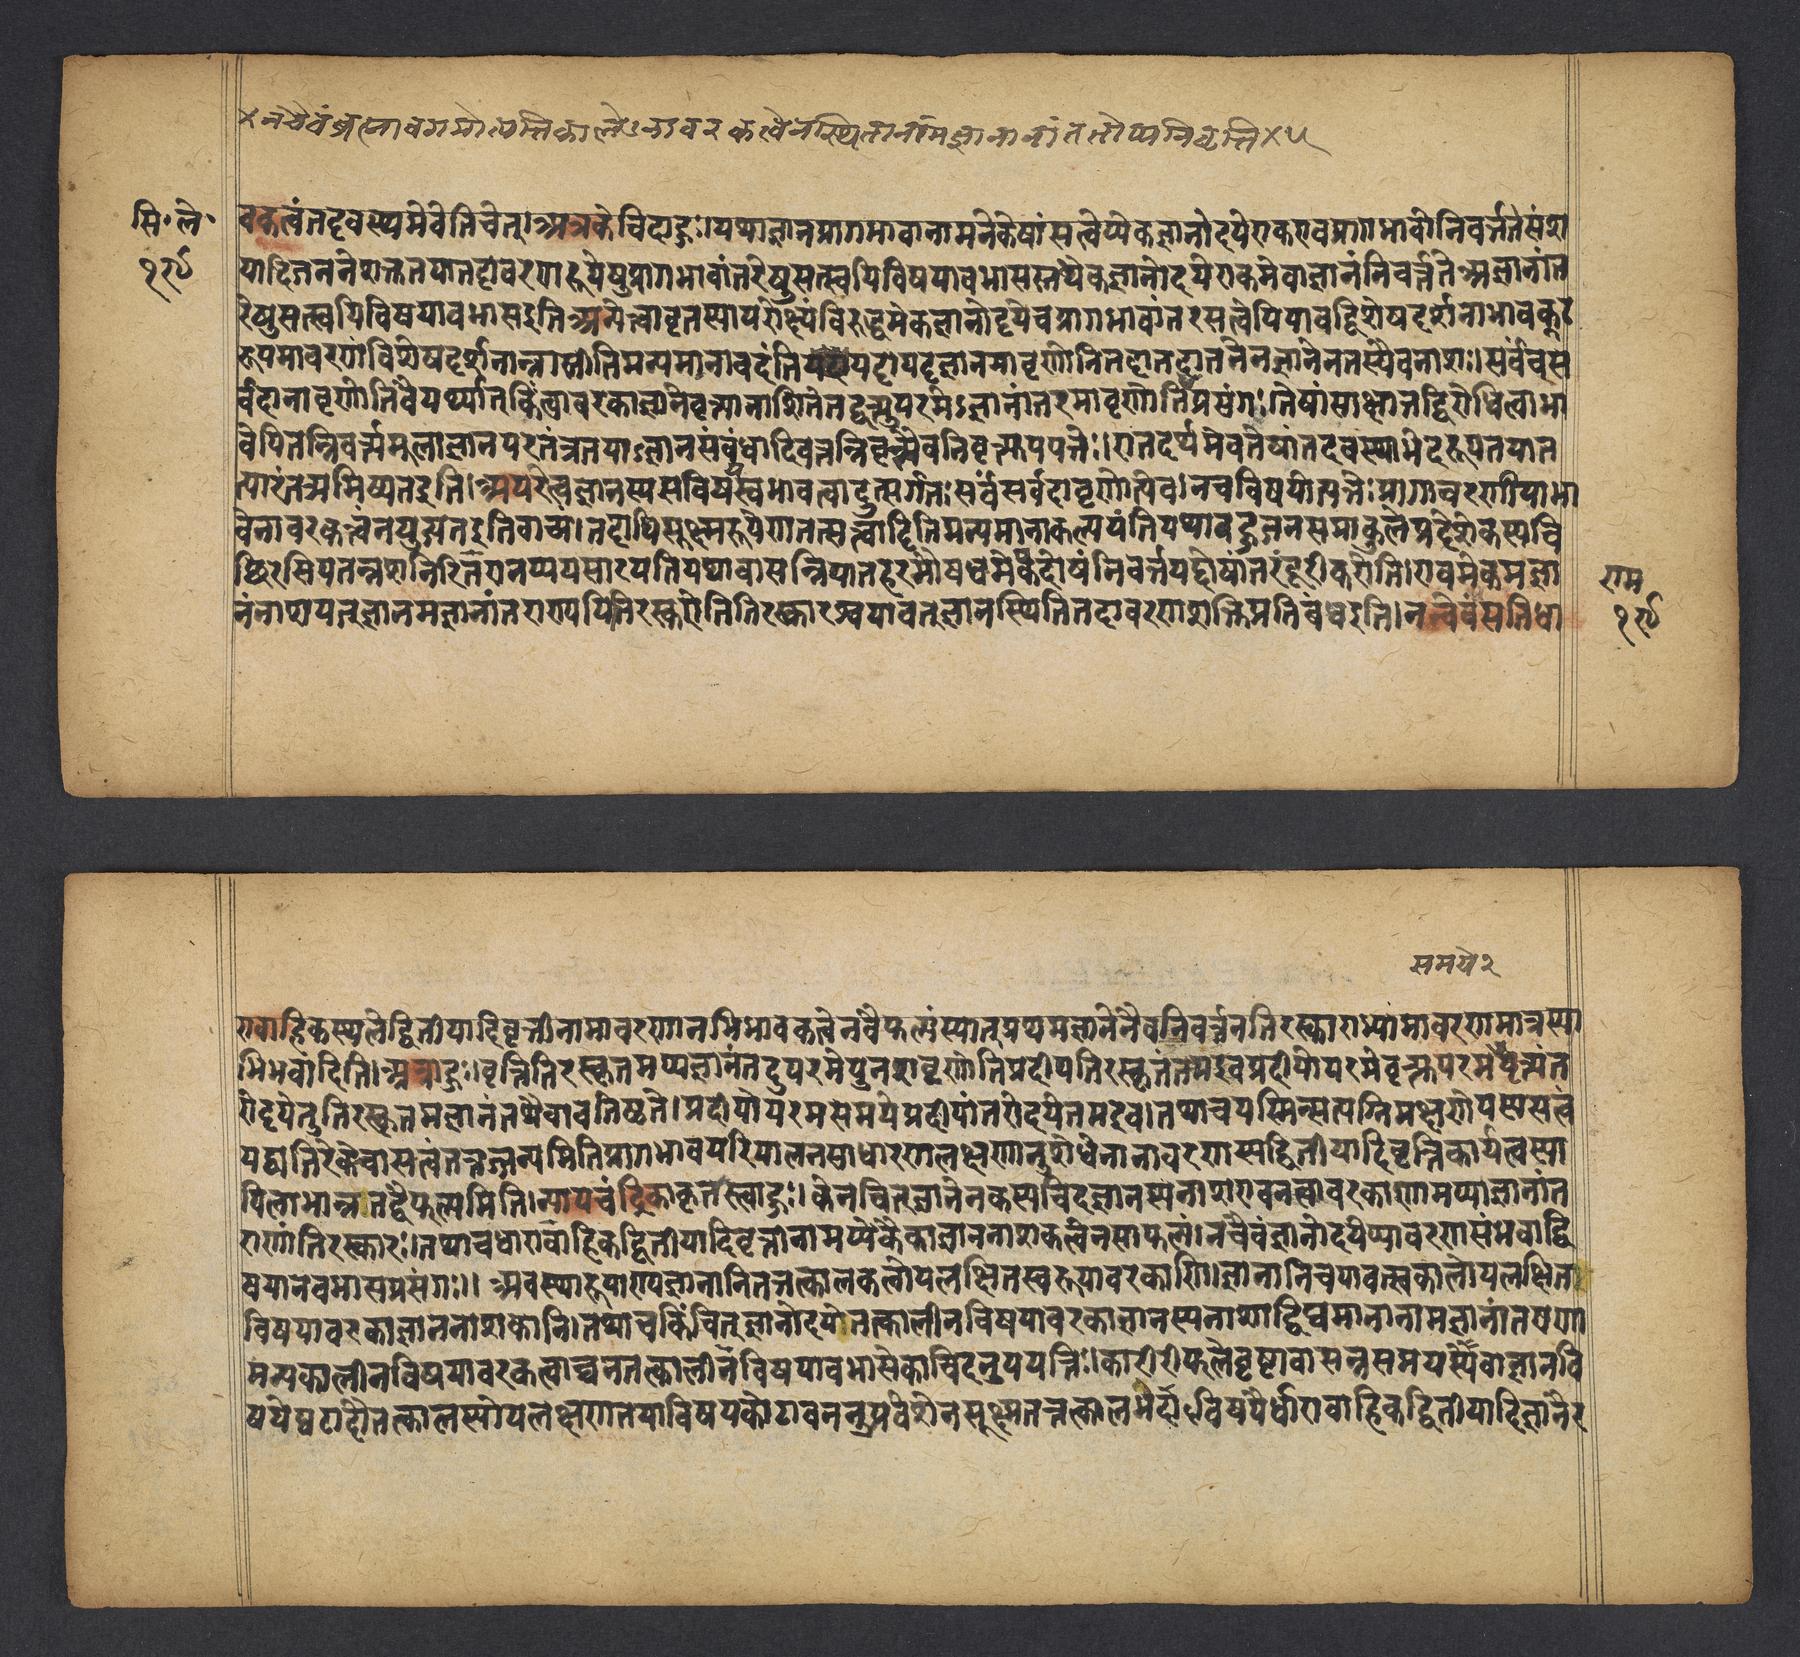 × न चैवं ज्ञानावगमोत्पत्तिकाले ऽनावरकत्वेन स्थितानामज्ञानानां ततोप्यनिवृत्ति × ५
सि॰ले॰
१९
वकत्वं तदवस्थमेवेति चेत्।अत्र केचिदाहुः।यथा ज्ञानप्रागभावानामनेकेषां सत्वेप्येकज्ञानोदये एक एव प्रागभावो निवर्त्तते संश
यादिजननेशक्ततया तदावरणरूपेषु प्रागभावांतरेषु सत्स्वपि विषयावभासस्तथैकज्ञानोदये एकमेवाज्ञानं निवर्त्तते अज्ञानांत
रेषु सत्स्वपि विषयावभास इति अन्ये त्वावृतस्यापरोक्ष्यं विरुद्धमेकज्ञानोदये च प्रागभावांतरसत्वेपि यावद्विशेषदर्शनाभावकूट
रूपमावरणं विशेषदर्शनान्नास्तीति मन्यमाना वदंति यदा यदज्ञानमावृणोति तदा तदा तेन ज्ञानेन तस्यैव नाशः।सर्वं च स
र्वदा नावृणोति वैयर्थ्यात् किंत्वावरकाज्ञाने वृत्त्या नाशिते तद्वृत्त्युपरमे ऽज्ञानांतरमावृणोति प्रसंगः तेषां साक्षात्तद्विरोधित्वाभा
वेपि तन्निवर्त्यमूलाज्ञानपरतंत्रतयाऽज्ञानसंबंधादिवत्तन्निवृत्त्यैव निवृत्त्युपपत्तेः।एतदर्थमेव तेषां तदवस्थाभेदरूपतया त
त्पारतंत्र्यमिष्यत इति।अपरे त्वज्ञानस्य सविषयस्वभावत्वादुत्सर्गतः सर्वं सर्वदावृणोत्येव।न च विषयोत्पत्तेः प्रागावरणीयाभा
वेनावरकत्वं न युज्यत इति वाच्यं।तदापि सूक्ष्मरूपेण तत्सत्वादिति मन्यमानाः कल्पयंति यथा बहुजनसमाकुले प्रदेशे कस्यचि
च्छिरसि पतन्नशनिरितरानप्यपसारयति यथा वा सन्निपातहरमौषधमेकं दोषं निवर्त्तयद्दोषांतरं दूरीकरोति।एवमेकमज्ञा
नं नाशयत् ज्ञानमज्ञानांतराण्यपि तिरस्करोति तिरस्कारश्च यावत् ज्ञानस्थिति तदावरणशक्तिप्रतिबंध इति।नन्वेवं सति धा
राम
१९
समये २
रावाहिकस्थले द्वितीयादिवृत्तीनामावरणानभिभावकत्वेन वैफल्यं स्यात् प्रथमज्ञानेनैव निवर्त्तनतिरस्काराभ्यामावरणमात्रस्या
भिभवादिति।अत्राहुः।वृत्तितिरस्कृतमप्यज्ञानं तदुपरमे पुनरावृणोति प्रदीपतिरस्कृतं तम इव प्रदीपोपरमे वृत्त्युपरमे वृत्त्यंत
रोदये तु तिरस्कृतमज्ञानं तथैवावतिष्ठते।प्रदीपोपरमसमये प्रदीपांतरोदये तम इव।तथा च यस्मिन्सत्यग्रिमक्षणे यस्य सत्वं
यद्व्यतिरेके चासत्वं तत्तज्जन्यमिति प्रागभावपरिपालनसाधारणलक्षणानुरोधेनानावरणस्य द्वितीयादिवृत्तिकार्यत्वस्या
पि लाभान्न तद्वैफल्यमिति।न्यायचंद्रिकाकृतस्त्वाहुः।केनचित् ज्ञानेन कस्यचिदज्ञानस्य नाश एव न त्वावरकाणामप्यज्ञानांत
राणां तिरस्कारः।तथा च धारावाहिकद्वितीयादिवृत्तीनामप्येकैकाज्ञाननाशकत्वेन साफल्यं।न चैवं ज्ञानोदयेप्यावरणसंभवाद्वि
षयानवभासप्रसंगः।।अवस्थारूपाण्यज्ञानानि तत्तत्कालकलोपलक्षितस्वरूपावरकाणि।ज्ञानानि च यावत्स्वकालोपलक्षिता
विषयावरकाज्ञाननाशकानि।तथा च किंचित् ज्ञानोदये तत्कालीनविषयावरकाज्ञानस्य नाशाद्विद्यमानानामज्ञानांतराणा
मन्यकालीनविषयावरकत्वाच्च न तत्कालीनविषयावभासे काचिदनुपपत्तिः।कारीरीफले वृष्टावासन्नसमयस्येवाज्ञानवि
षये घटादौ तत्कालस्योपलक्षणतया विषयकोटावननुप्रवेशेन सूक्ष्मतत्तत्कालभेदाऽविषयैर्धारावाहिकद्वितीयादिज्ञानैर